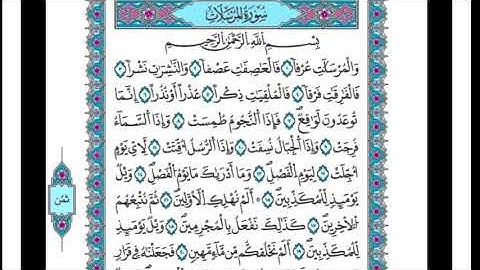 سُورَةُ المُرْسَلَات
بِسْمِ اللَّهِ الرَّحْمَٰنِ الرَّحِيمِ
وَالْمُرْسَلَٰتِ عُرْفًا ۝ فَالْعَٰصِفَٰتِ عَصْفًا ۝ وَالنَّٰشِرَٰتِ نَشْرًا ۝
فَالْفَٰرِقَٰتِ فَرْقًا ۝ فَالْمُلْقِيَٰتِ ذِكْرًا ۝ عُذْرًا أَوْ نُذْرًا ۝ إِنَّمَا
تُوعَدُونَ لَوَٰقِعٌ ۝ فَإِذَا النُّجُومُ طُمِسَتْ ۝ وَإِذَا السَّمَآءُ
فُرِجَتْ ۝ وَإِذَا الْجِبَالُ نُسِفَتْ ۝ وَإِذَا الرُّسُلُ أُقِّتَتْ ۝ لِأَىِّ يَوْمٍ
أُجِّلَتْ ۝ لِيَوْمِ الْفَصْلِ ۝ وَمَآ أَدْرَىٰكَ مَا يَوْمُ الْفَصْلِ ۝ وَيْلٌ
يَوْمَئِذٍ لِّلْمُكَذِّبِينَ ۝ أَلَمْ نُهْلِكِ الْأَوَّلِينَ ۝ ثُمَّ نُتْبِعُهُمُ
الْءَاخِرِينَ ۝ كَذَٰلِكَ نَفْعَلُ بِالْمُجْرِمِينَ ۝ وَيْلٌ يَوْمَئِذٍ
لِّلْمُكَذِّبِينَ ۝ أَلَمْ نَخْلُقكُّم مِّن مَّآءٍ مَّهِينٍ ۝ فَجَعَلْنَٰهُ فِى قَرَارٍ
ثُمُن